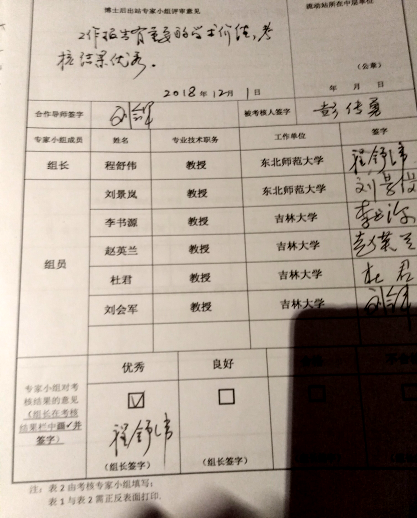 博士后出站专家小组评审意见
流动站所在中层单位
工作报告有重要的学术价值,考
核结果优秀。
(公章)
2018年12月1日
年 月 日
合作导师签字 刘会军 被考核人签字 彭传勇
专家小组成员 姓名 专业技术职务 工作单位 签字
组长 程舒伟 教授 东北师范大学 程舒伟
刘景岚 教授 东北师范大学 刘景岚
李书源 教授 吉林大学 李书源
组员 赵英兰 教授 吉林大学 赵英兰
杜君 教授 吉林大学 杜君
刘会军 教授 吉林大学 刘会军
优秀 良好
专家小组对考
核结果的意见
(组长在考核
结果栏中画✓并
签字)
程舒伟
(组长签字) (组长签字)
注:表2由考核专家小组填写;
表1与表2需正反表面打印.